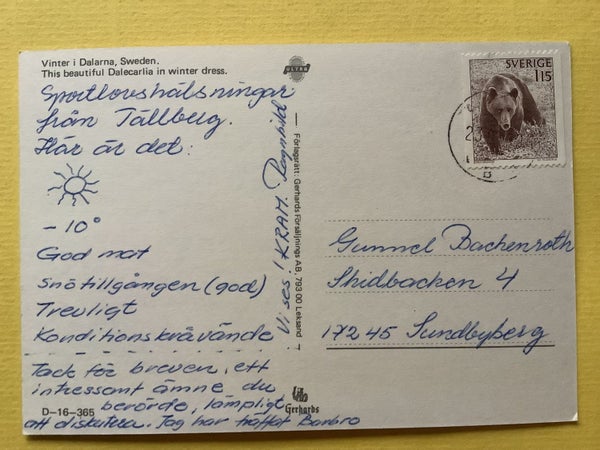 Vinter i Dalarna, Sweden.
This beautiful Dalecarlia in winter dress.
ULTRA
Sportlovshälsningar
från Tällberg.
Här är det:
- 10°
God mat
Snötillgången (god)
Trevligt
Konditionskrävande
Tack för breven, ett
intressant ämne du
berörde, lämpligt
att diskutera. Jag har träffat Barbro
Vi ses! KRAM. Ragnhild
Förlagsrätt: Gerhards Försäljnings AB, 793 00 Leksand
D-16-365
Gerhards
SVERIGE
115
B
Gunnel Bachenroth
Skidbacken 4
172 45 Sundbyberg